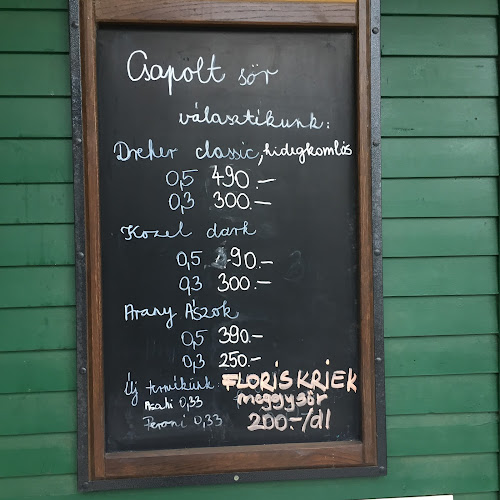 Csapolt sör
választékunk:
Dreher classic, hidegkomlós
0,5 490.-
0,3 300.-
Kozel dark
0,5 490.-
0,3 300.-
Arany Ászok
0,5 390.-
0,3 250.-
Új termékünk: FLORIS KRIEK
Asahi 0,33 meggysör
Peroni 0,33 200.-/dl